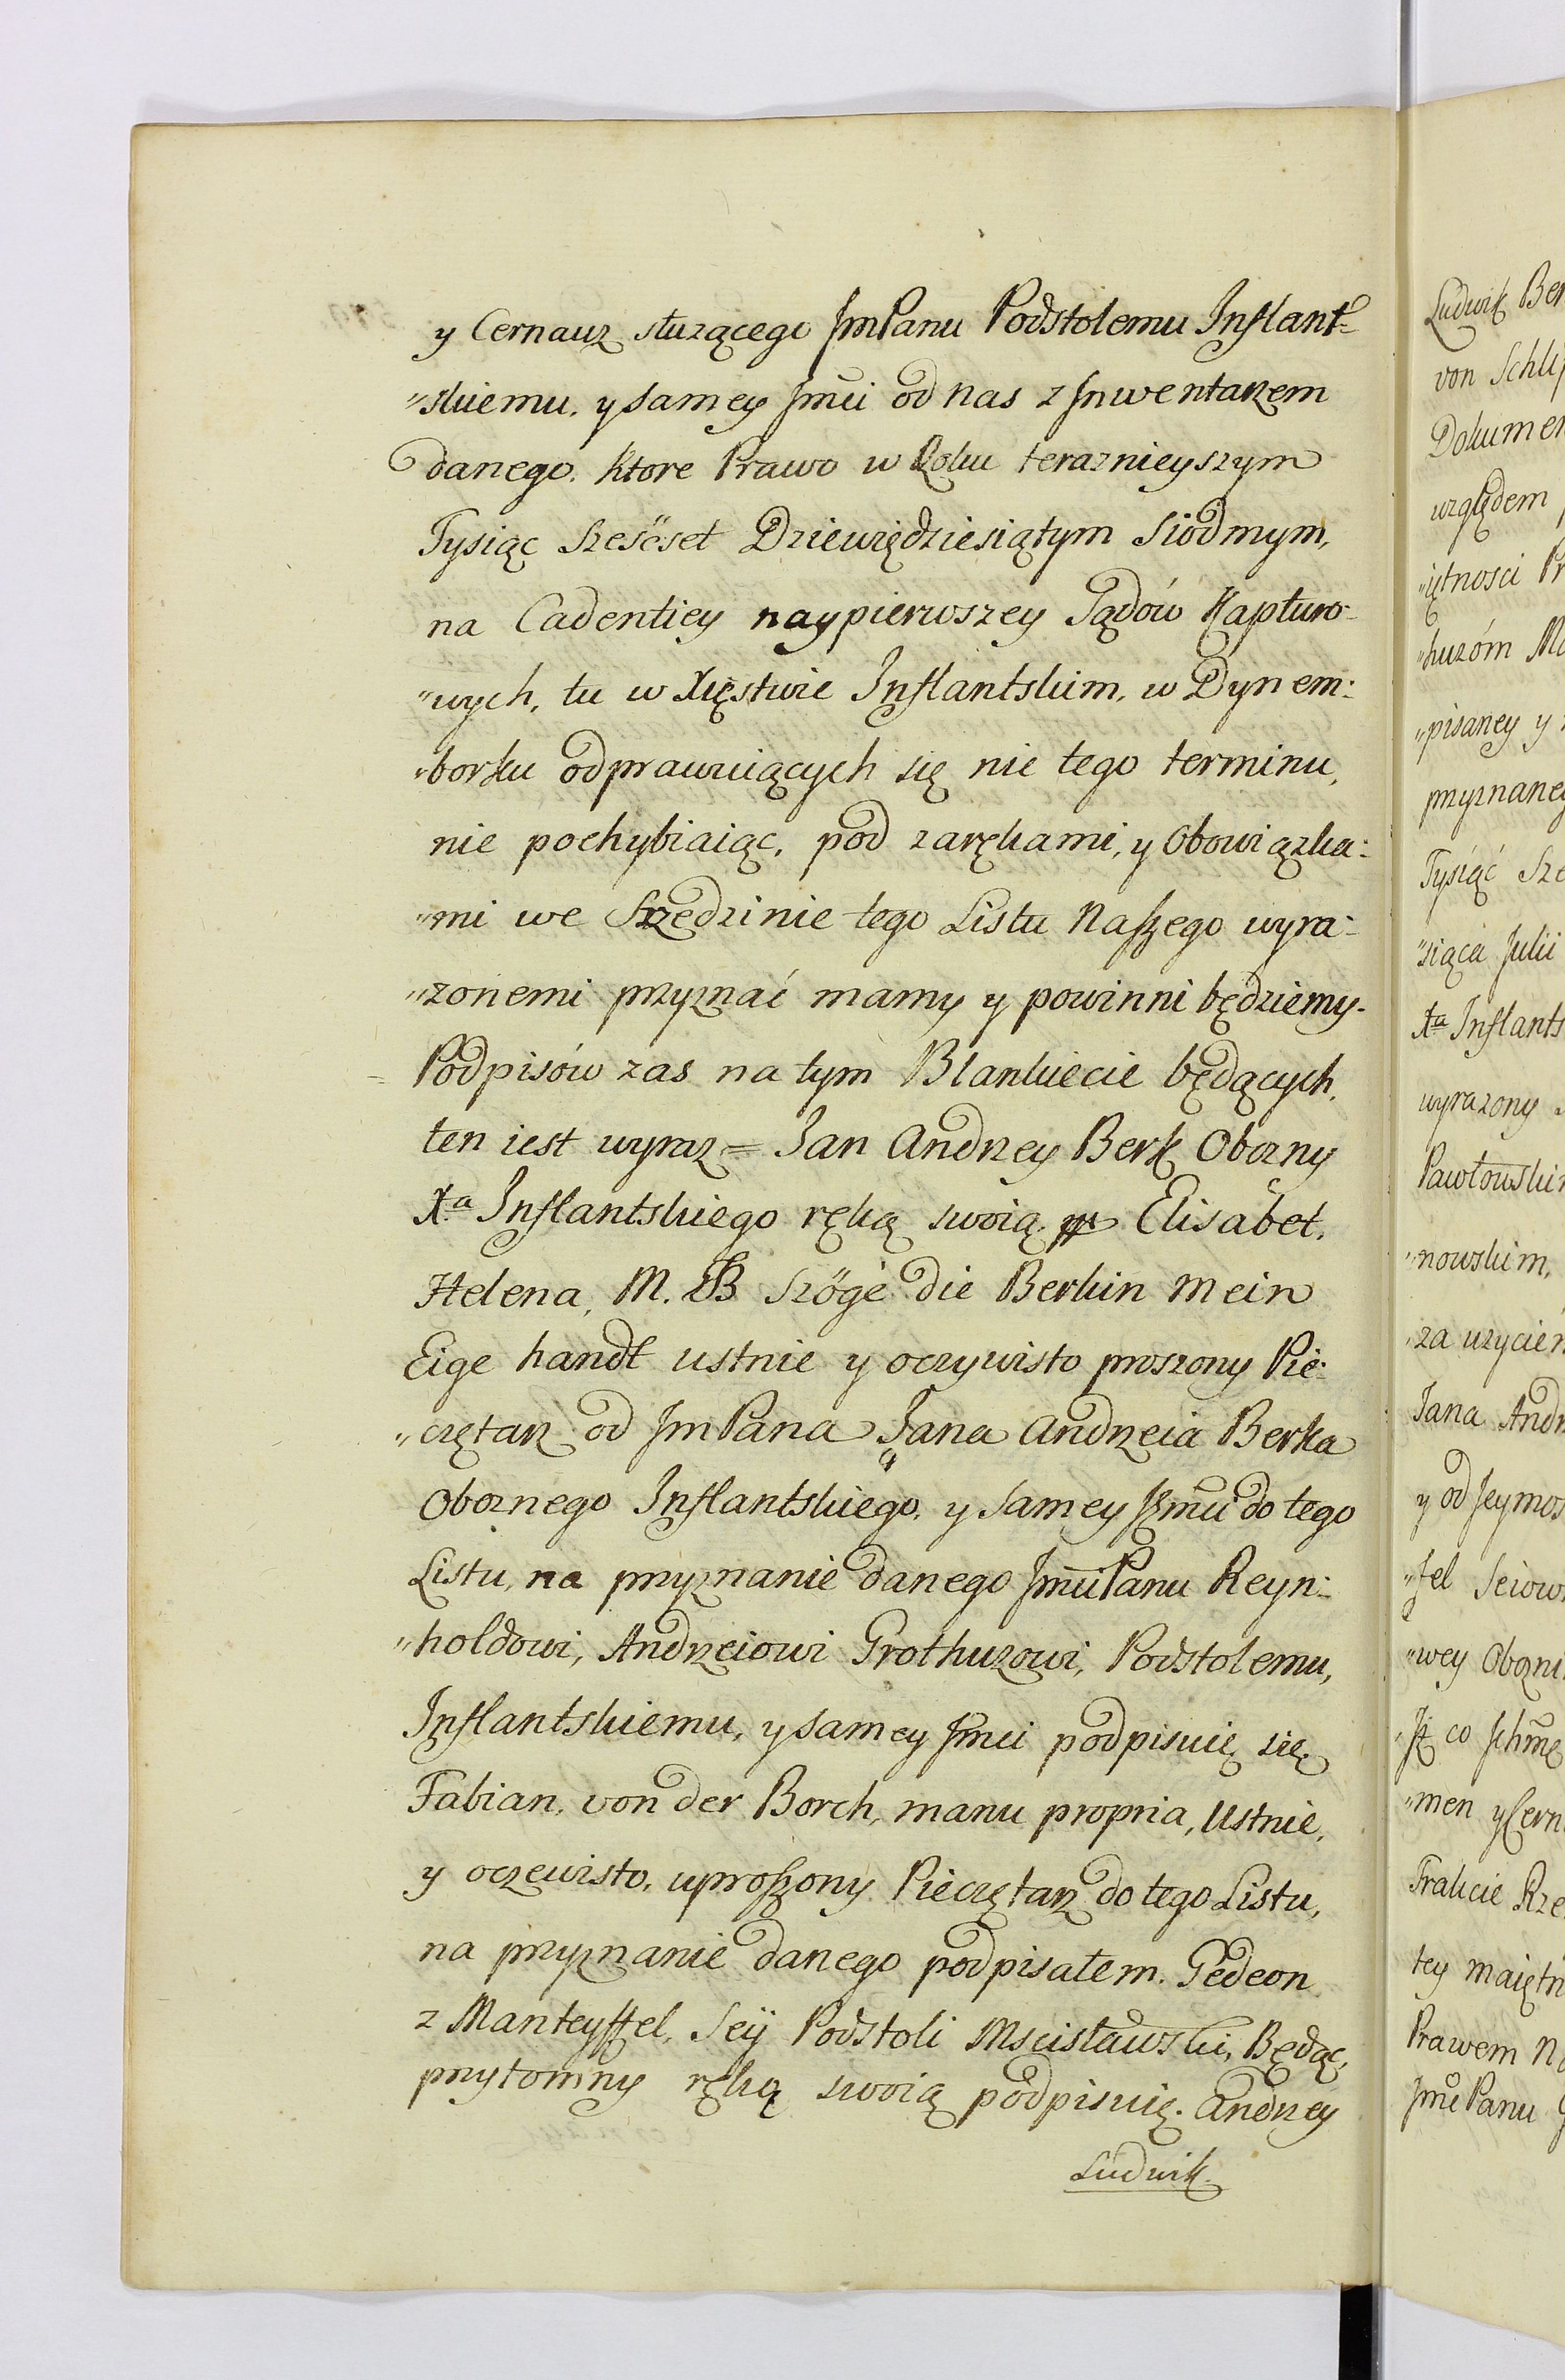 y Cernauz słuzącego JmPanu Podstolemu Inflant=
"skiemu, y samey Jmci od nas z Jnwentarzem
danego. ktore Prawo w Roku teraznieyszym
Tysiąc szesćset Dziewiędziesiątym siodmym,
na Cadentiey naypierwszey Sądów Kapturo=
"wych, tu w Xięstwie Inflantskim, w Dynem=
"borku odprawuiących się nie tego terminu,
nie pochybiaiąc, pod zarękami, y Obowiązka=
"mi we Srzedzinie tego Listu Naszego wyra=
"zonemi przyznać mamy y powinni będziemy.
Podpisów zas na tym Blankiecie będących,
ten iest wyraz = Jan Andrzey Berk Obozny
Xa Inflantskiego ręką swoią. Elisabet,
Helena, M. B szöge die Berkin Mein
Eige handt ustnie y oczywisto proszony Pie=
"czętarz od JmPana Jana Andrzeia Berka
Oboznego Inflantskiego, y samey Jmci do tego
Listu, na przyznanie danego JmciPanu Reyn=
"holdowi, Andrzeiowi Grothuzowi, Podstolemu,
Inflantskiemu, y samey Jmci podpisuię się,
Fabian, von der Borch, manu propria, Ustnie,
y oczewisto, uproszony Pieczętarz do tego Listu,
na przyznanie danego podpisałem. Gedeon
z Manteyffel, Seÿ Podstoli Mscisławski, Będąc,
przytomny ręką swoią podpisuię. Andrzey
Ludwik.
Ludwik Ber
von Schli
Dokumen
względem
"iętnosci Pr
"huzóm Ma
"pisaney y
przyznaney
Tysiąc Sze
"siąca Julii
Xa Inflants
wyrazony
Pawłowskim
"nowskim,
"za uzyciem
Jana Andr
y od Jeymos
"fel Seiow
"wey Obozni
Jż co Jchmę
"men y Cern
Trakcie Rze
tey maiętn
Prawem Na
JmciPanu G